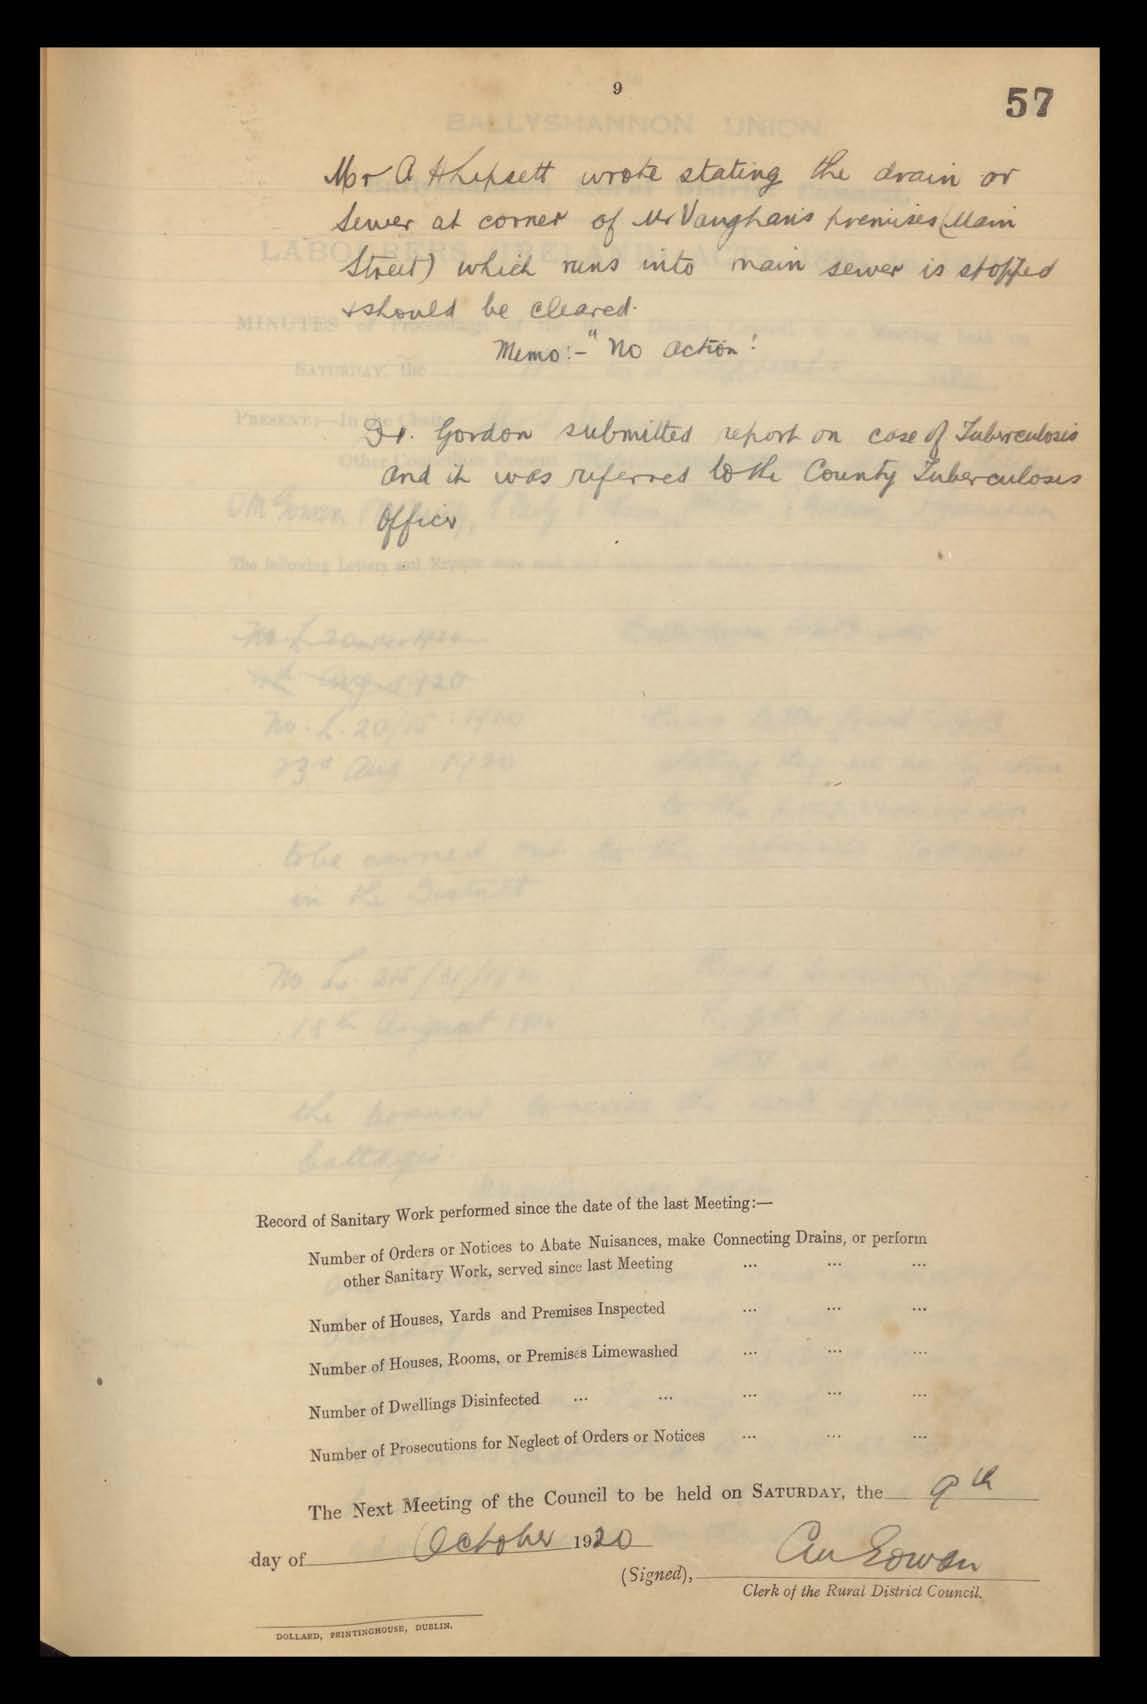 9
57
Mr A H Lipsett wrote stating the drain or
Sewer at corner of Mr Vaughan's premises (Main
Street) which runs into main sewer is stopped
& should be cleared.
Memo:- "No action!
Dr. Gordon submitted report on case of Tuberculosis
and it was referred to the County Tuberculosis
Officer
Record of Sanitary Work performed since the date of the last Meeting:—
Number of Orders or Notices to Abate Nuisances, make Connecting Drains, or perform
other Sanitary Work, served since last Meeting ... ... ...
Number of Houses, Yards and Premises Inspected ... ... ...
Number of Houses, Rooms, or Premises Limewashed ... ... ...
Number of Dwellings Disinfected ... ... ... ... ...
Number of Prosecutions for Neglect of Orders or Notices ... ... ...
The Next Meeting of the Council to be held on SATURDAY, the 9th
day of October 1920
(Signed),
Clerk of the Rural District Council.
DOLLARD, PRINTINGHOUSE, DUBLIN.